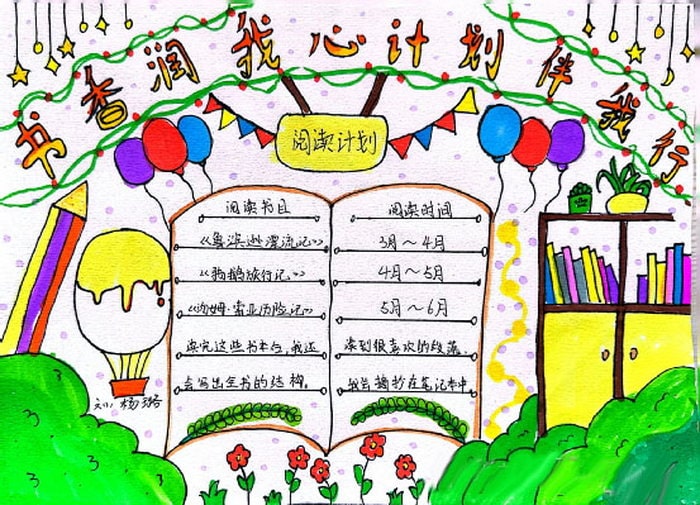 书香润我心计划伴我行
阅读计划
阅读书目
《鲁滨逊漂流记》
《骑鹅旅行记》
《汤姆·索亚历险记》
读完这些书本后，我还
会写出全书的结构。
阅读时间
3月～4月
4月～5月
5月～6月
读到很喜欢的段落
我会摘抄在笔记本中
杨璐